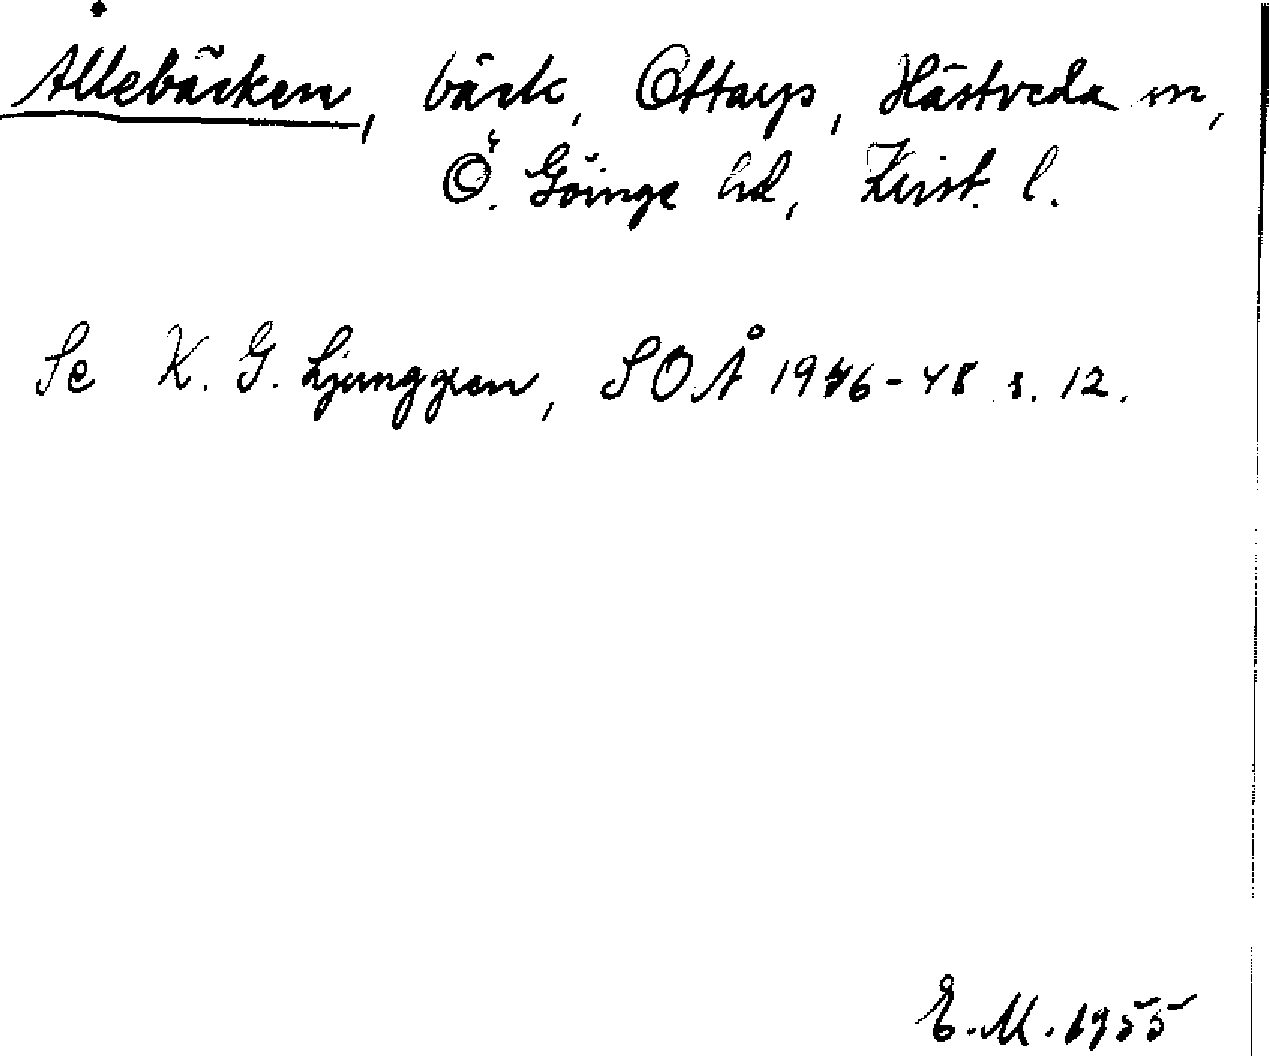 Ållebäcken, bäck, Ottarp, Hästveda sn,
Ö. Göinge hd, Krist. l.
Se K. G. Ljunggren, SOÅ 1946-48 s. 12.
E.M. 1955